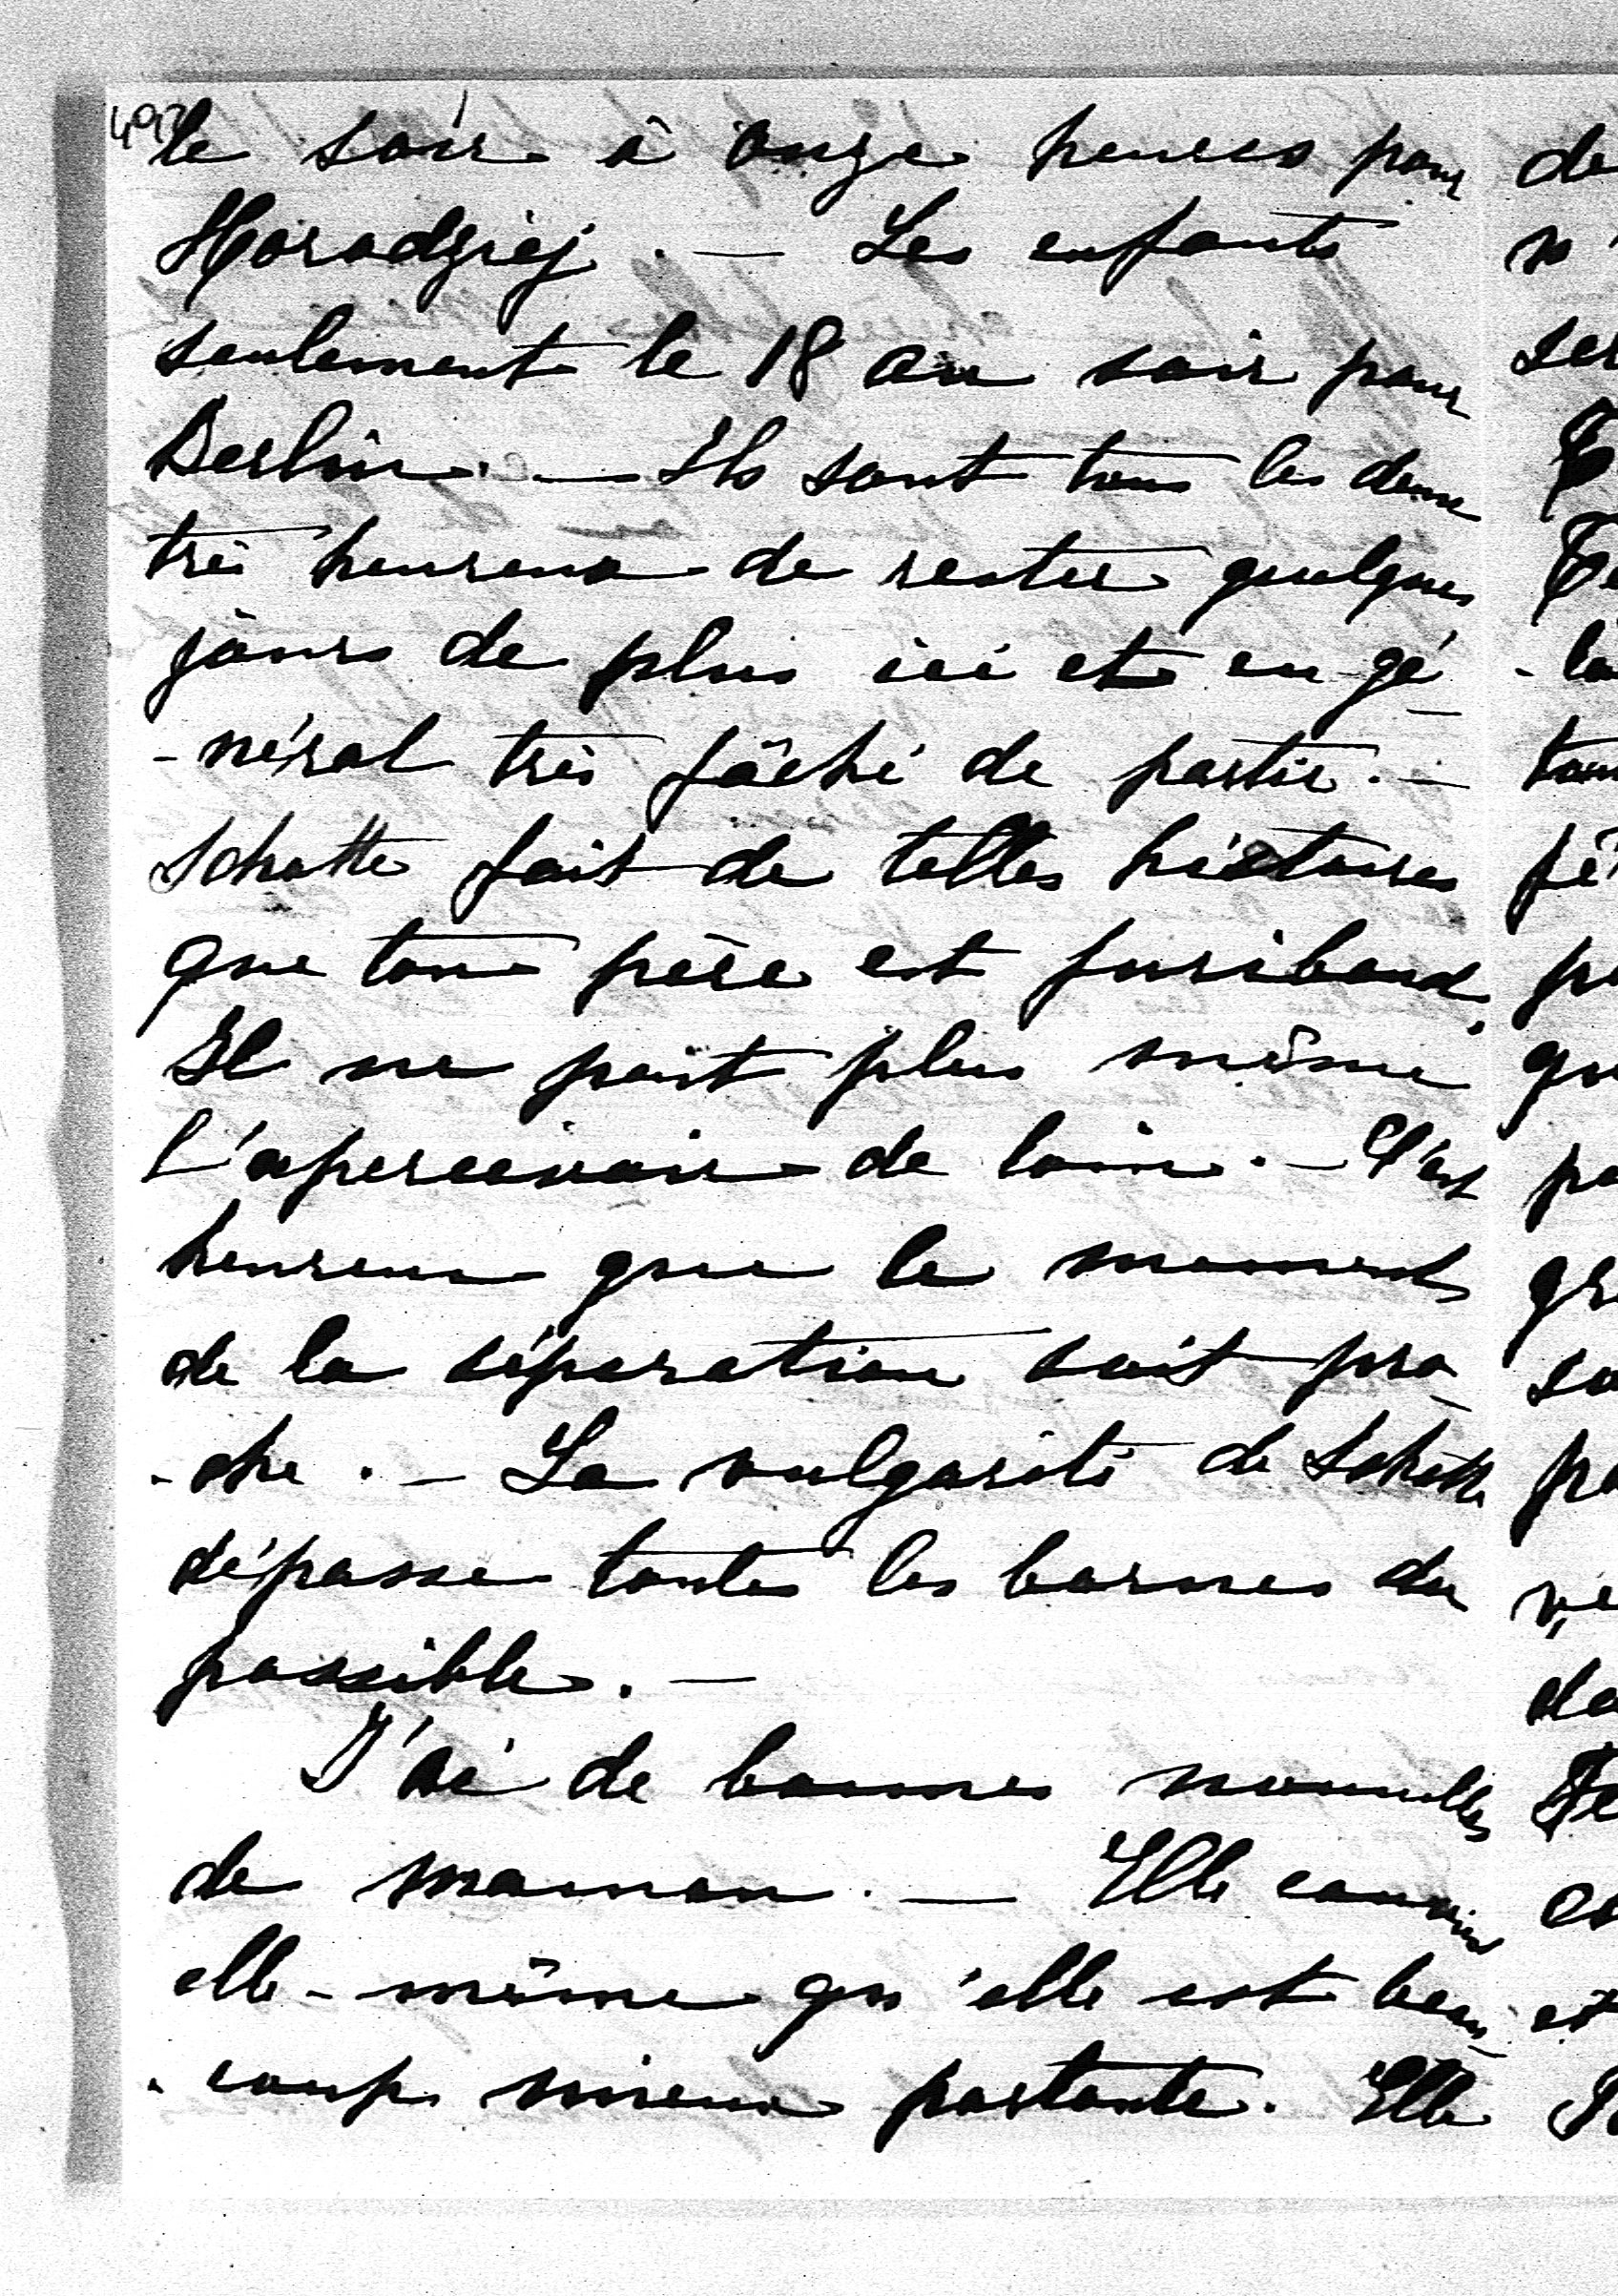 le soir à onze heures pour
Horodziej. — Les enfants
seulement le 18 au soir pour
Berlin. — Ils sont tous les deux
très heureux de rester quelques
jours de plus ici et en gé-
-néral très fâché de partir. —
Schotte fait de telles histoires
que ton père est furibond.
Il ne peut plus même
l'apercevoir de loin. — C'est
heureux que le moment
de la séparation soit pro-
-che. — La vulgarité de Schotte
dépasse toutes les bornes du
possible. —
J'ai de bonnes nouvelles
de maman. — Elle convient
elle-même qu'elle est beau-
-coup mieux portante. Elle